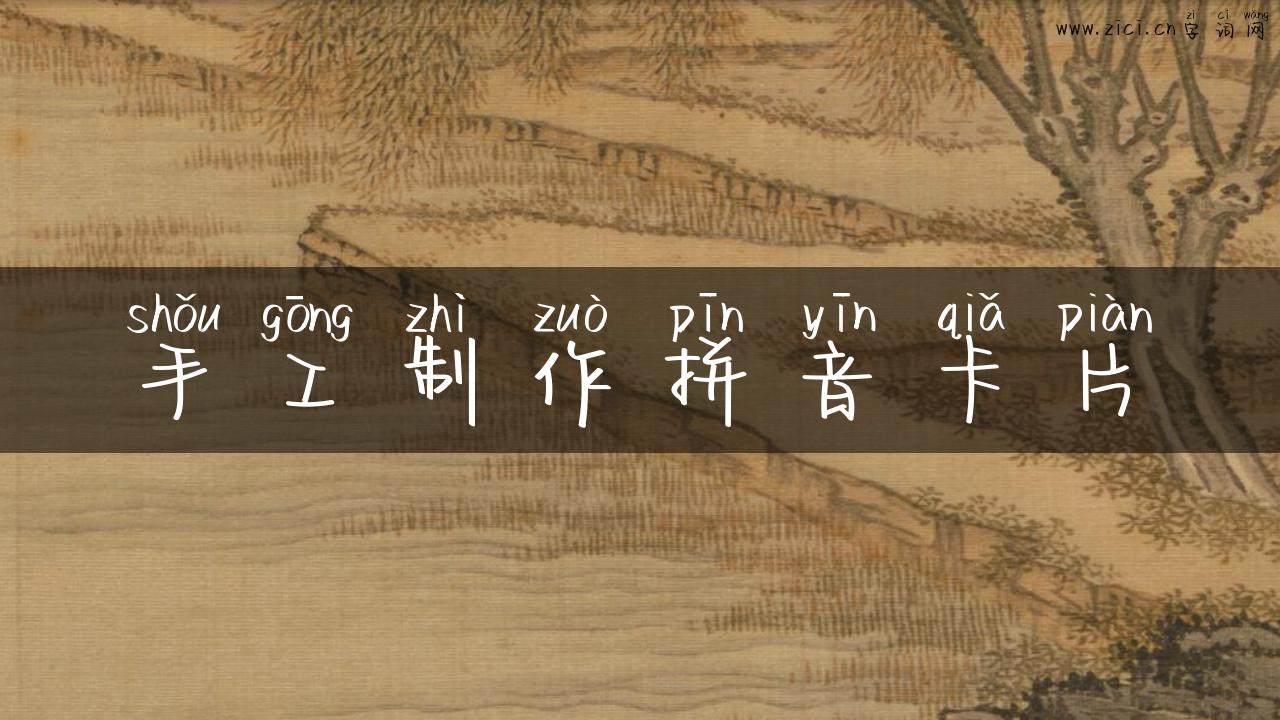 zì cí wǎng
www.zici.cn 字 词 网
shǒu gōng zhì zuò pīn yīn qiǎ piàn
手 工 制 作 拼 音 卡 片